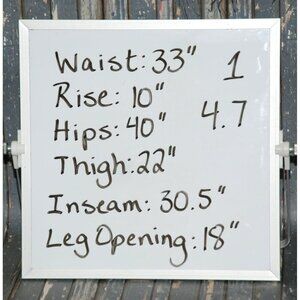 Waist: 33" 1
Rise: 10" 4.7
Hips: 40"
Thigh: 22"
Inseam: 30.5"
Leg Opening: 18"